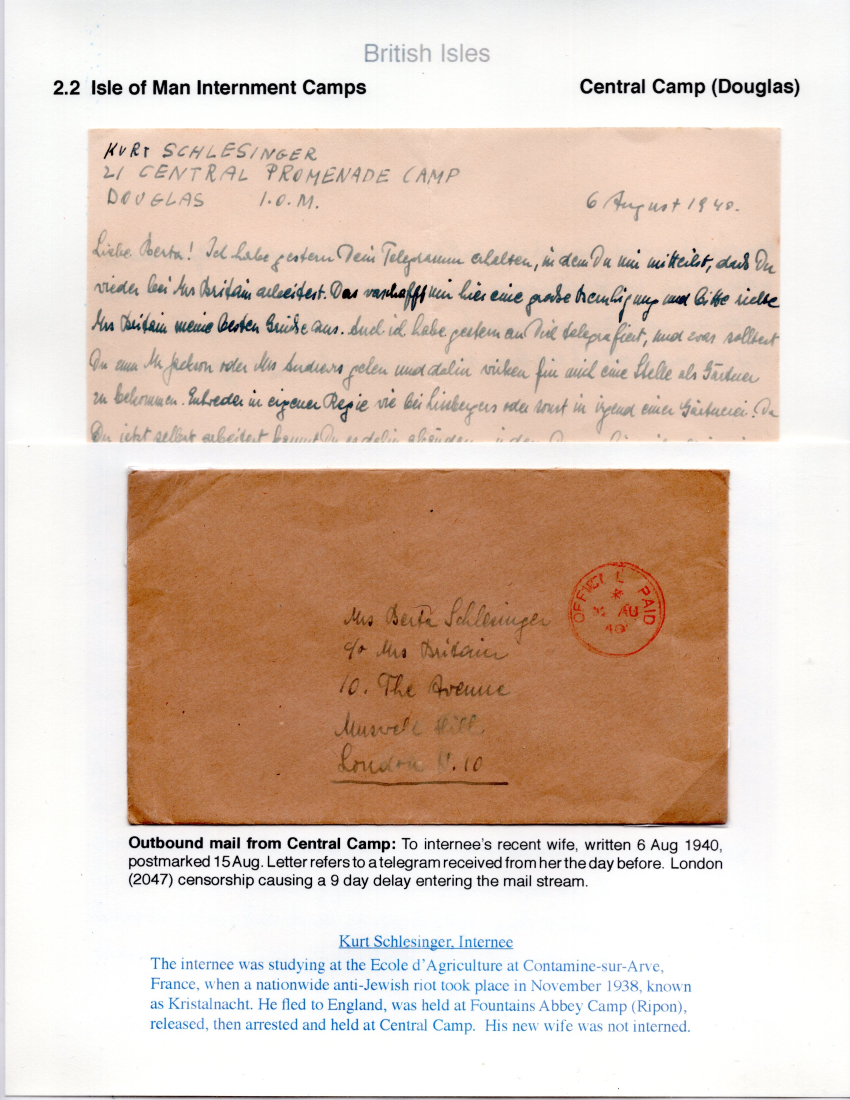 British Isles
2.2 Isle of Man Internment Camps
Central Camp (Douglas)
KURT SCHLESINGER
21 CENTRAL PROMENADE CAMP
DOUGLAS I.O.M.
6 August 1940.
Liebe Berta! Ich habe gestern Dein Telegramm erhalten, in dem Du mir mitteilst, daß Du
wieder bei Mrs Britain arbeitest. Das verschafft mir hier eine große Beruhigung und bitte richte
Mrs Britain meine besten Grüße aus. Auch ich habe gestern an Dich telegrafiert, und zwar solltest
Du zum Mr Jackson oder Mrs Andrews gehen und dahin wirken für mich eine Stelle als Gärtner
zu bekommen. Entweder in eigener Regie wie bei oder sonst in irgend einer Gärtnerei. Da
Du jetzt selbst arbeitest kannst Du
OFFICIAL PAID
AU
40
Mrs Berta Schlesinger
c/o Mrs Britain
10. The Avenue
Muswell Hill
London N.10
Outbound mail from Central Camp: To internee's recent wife, written 6 Aug 1940,
postmarked 15 Aug. Letter refers to a telegram received from her the day before. London
(2047) censorship causing a 9 day delay entering the mail stream.
Kurt Schlesinger, Internee
The internee was studying at the Ecole d'Agriculture at Contamine-sur-Arve,
France, when a nationwide anti-Jewish riot took place in November 1938, known
as Kristalnacht. He fled to England, was held at Fountains Abbey Camp (Ripon),
released, then arrested and held at Central Camp. His new wife was not interned.